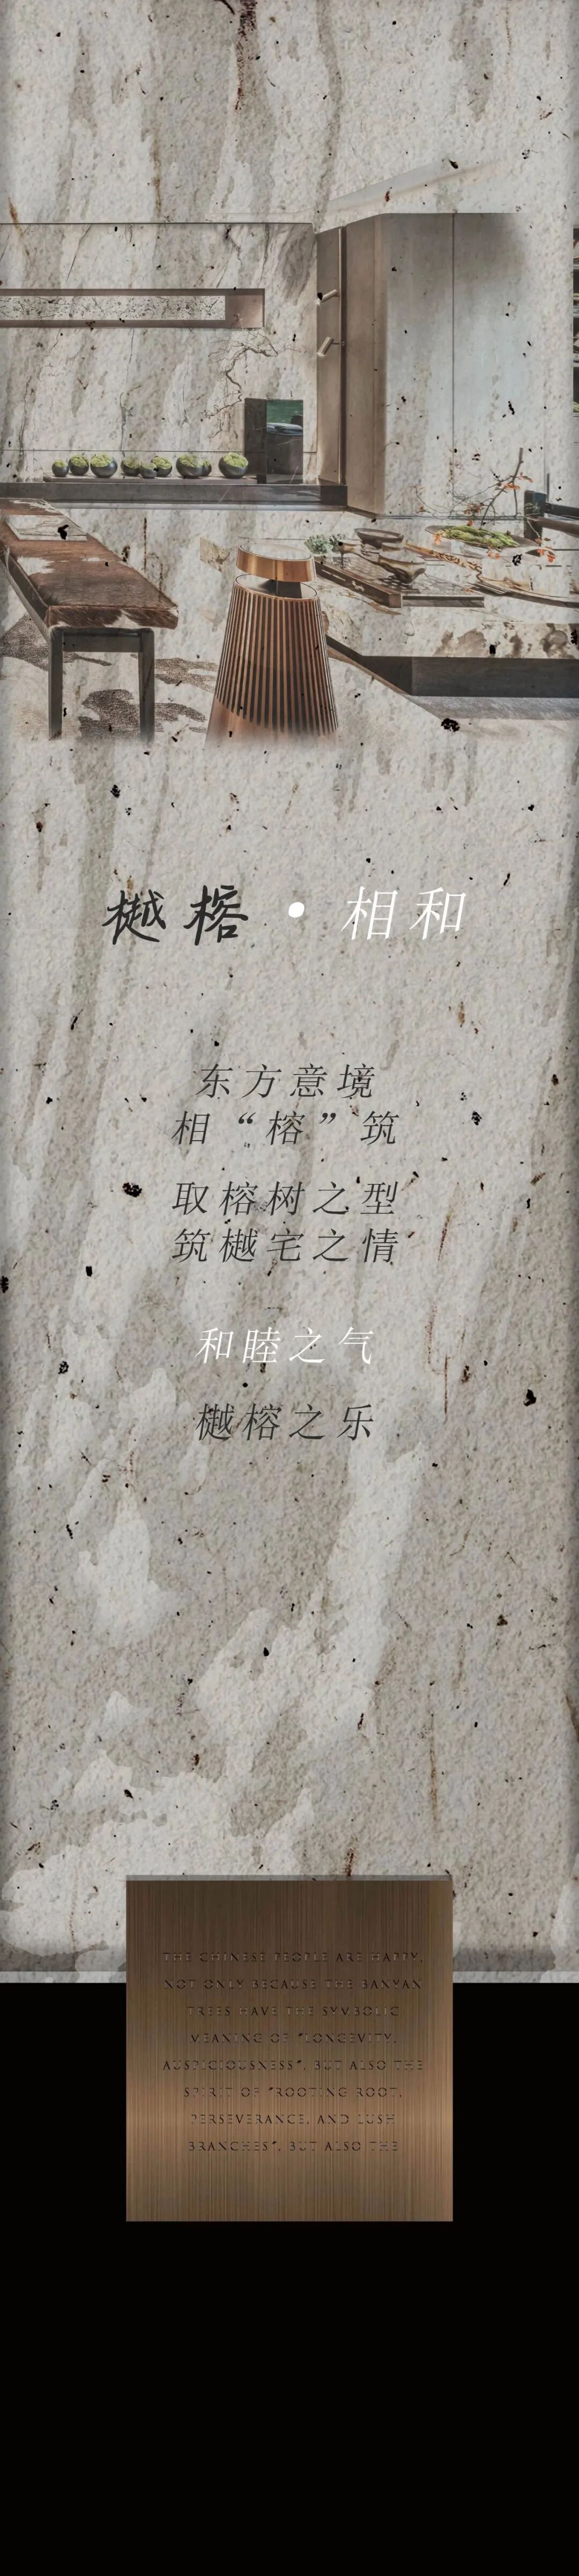 樾榕 • 相和
东方意境
相“榕”筑
取榕树之型
筑樾宅之情
和睦之气
樾榕之乐
THE CHINESE PEOPLE ARE HAPPY,
NOT ONLY BECAUSE THE BANYAN
TREES HAVE THE SYMBOLIC
MEANING OF "LONGEVITY,
AUSPICIOUSNESS", BUT ALSO THE
SPIRIT OF "ROOTING ROOT,
PERSEVERANCE, AND LUSH
BRANCHES", BUT ALSO THE